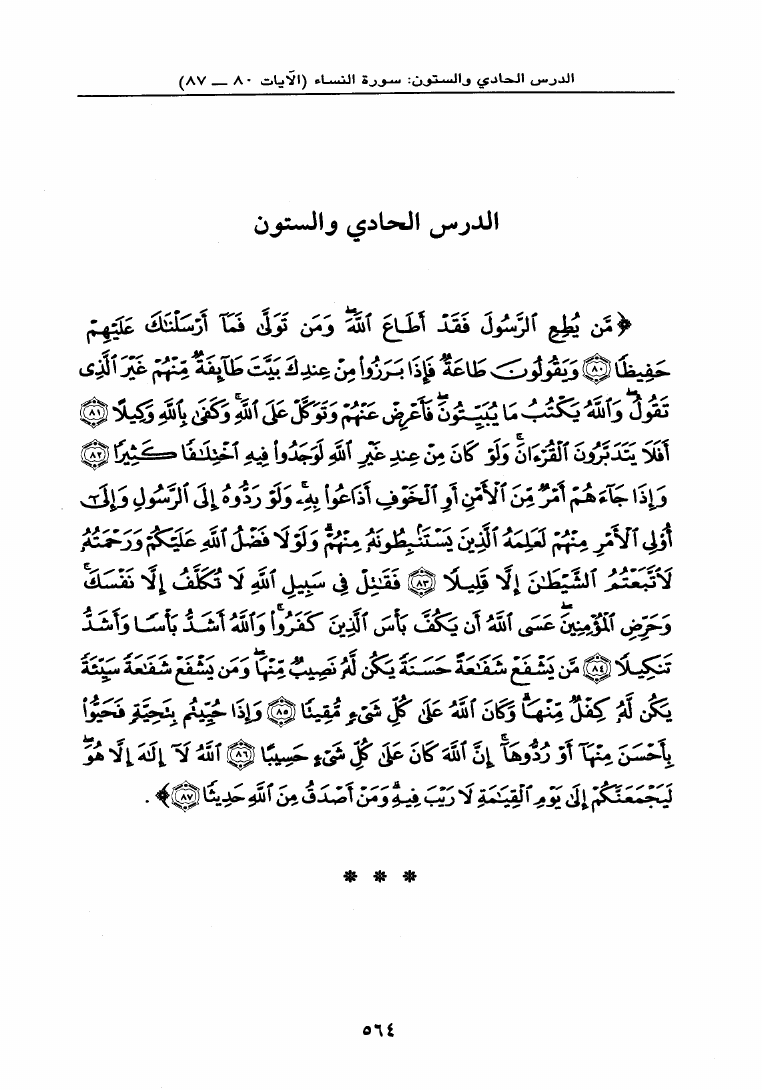 الدرس الحادي والستون: سورة النساء (الآيات ٨٠ — ٨٧)
الدرس الحادي والستون
﴿مَّن يُطِعِ ٱلرَّسُولَ فَقَدْ أَطَاعَ ٱللَّهَۖ وَمَن تَوَلَّىٰ فَمَآ أَرْسَلْنَٰكَ عَلَيْهِمْ
حَفِيظًا ﴿٨٠﴾ وَيَقُولُونَ طَاعَةٌ فَإِذَا بَرَزُوا۟ مِنْ عِندِكَ بَيَّتَ طَآئِفَةٌ مِّنْهُمْ غَيْرَ ٱلَّذِى
تَقُولُۖ وَٱللَّهُ يَكْتُبُ مَا يُبَيِّتُونَۖ فَأَعْرِضْ عَنْهُمْ وَتَوَكَّلْ عَلَى ٱللَّهِۚ وَكَفَىٰ بِٱللَّهِ وَكِيلًا ﴿٨١﴾
أَفَلَا يَتَدَبَّرُونَ ٱلْقُرْءَانَۚ وَلَوْ كَانَ مِنْ عِندِ غَيْرِ ٱللَّهِ لَوَجَدُوا۟ فِيهِ ٱخْتِلَٰفًا كَثِيرًا ﴿٨٢﴾
وَإِذَا جَآءَهُمْ أَمْرٌ مِّنَ ٱلْأَمْنِ أَوِ ٱلْخَوْفِ أَذَاعُوا۟ بِهِۦۖ وَلَوْ رَدُّوهُ إِلَى ٱلرَّسُولِ وَإِلَىٰٓ
أُو۟لِى ٱلْأَمْرِ مِنْهُمْ لَعَلِمَهُ ٱلَّذِينَ يَسْتَنۢبِطُونَهُۥ مِنْهُمْۗ وَلَوْلَا فَضْلُ ٱللَّهِ عَلَيْكُمْ وَرَحْمَتُهُۥ
لَٱتَّبَعْتُمُ ٱلشَّيْطَٰنَ إِلَّا قَلِيلًا ﴿٨٣﴾ فَقَٰتِلْ فِى سَبِيلِ ٱللَّهِ لَا تُكَلَّفُ إِلَّا نَفْسَكَۚ
وَحَرِّضِ ٱلْمُؤْمِنِينَۖ عَسَى ٱللَّهُ أَن يَكُفَّ بَأْسَ ٱلَّذِينَ كَفَرُوا۟ۚ وَٱللَّهُ أَشَدُّ بَأْسًا وَأَشَدُّ
تَنكِيلًا ﴿٨٤﴾ مَّن يَشْفَعْ شَفَٰعَةً حَسَنَةً يَكُن لَّهُۥ نَصِيبٌ مِّنْهَاۖ وَمَن يَشْفَعْ شَفَٰعَةً سَيِّئَةً
يَكُن لَّهُۥ كِفْلٌ مِّنْهَاۗ وَكَانَ ٱللَّهُ عَلَىٰ كُلِّ شَىْءٍ مُّقِيتًا ﴿٨٥﴾ وَإِذَا حُيِّيتُم بِتَحِيَّةٍ فَحَيُّوا۟
بِأَحْسَنَ مِنْهَآ أَوْ رُدُّوهَآۗ إِنَّ ٱللَّهَ كَانَ عَلَىٰ كُلِّ شَىْءٍ حَسِيبًا ﴿٨٦﴾ ٱللَّهُ لَآ إِلَٰهَ إِلَّا هُوَۚ
لَيَجْمَعَنَّكُمْ إِلَىٰ يَوْمِ ٱلْقِيَٰمَةِ لَا رَيْبَ فِيهِۗ وَمَنْ أَصْدَقُ مِنَ ٱللَّهِ حَدِيثًا ﴿٨٧﴾﴾.
* * *
٥٦٤